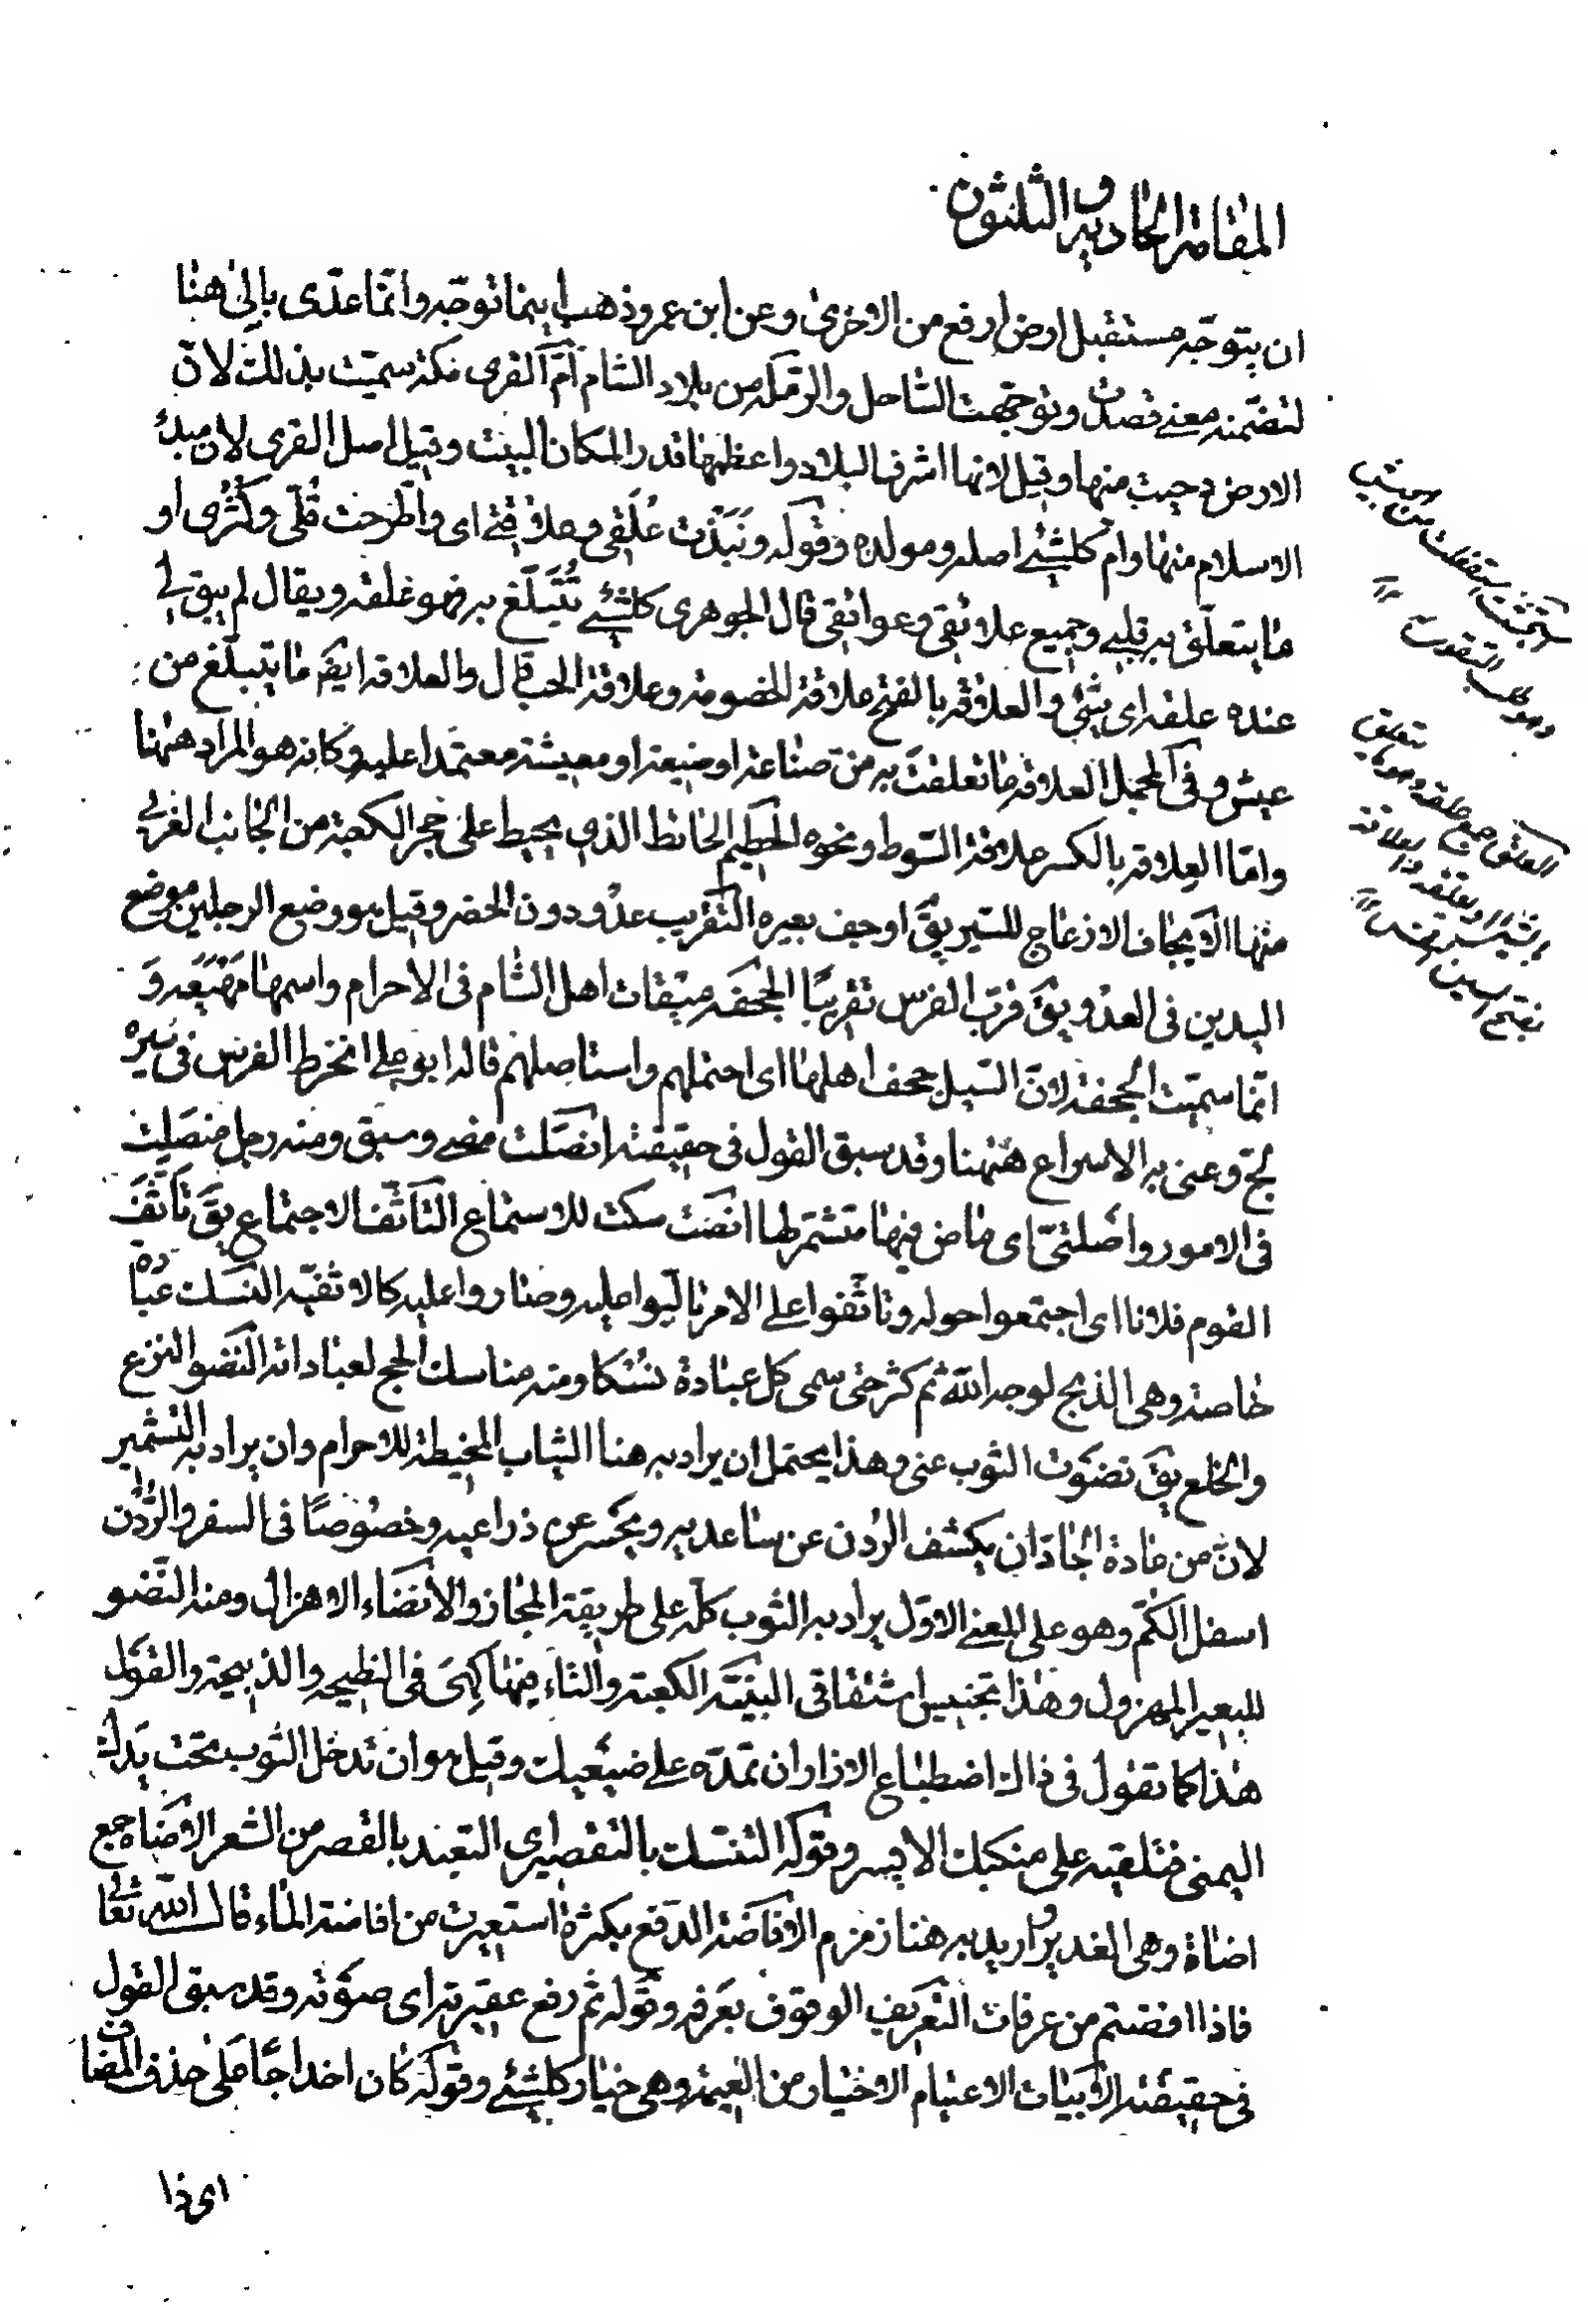 المقامة الحادية والثلثون
ان يتوجّه مستقبل ارض ارفع من الاخرى وعن ابن عمرو ذهب اينما توجّه وانّما عدّى بالى هنا
لتضمّنه معنى قصدت وتوجّهت الساحل والرملة من بلاد الشام امّ القرى مكة سميّت بذلك لانّ
الارض دحيت منها وقيل لانها اشرف البلاد واعظمها قدرا لمكان البيت وقيل اصل القرى لان مبدئ
الاسلام منها وام كلشئ اصله ومولده وقوله ونبذت عُلَقى وعلاقتى اى واطّرحت قُلّى وكُثْرى او
ما يتعلّق به قلبى وجميع علائقى وعوائقى قال الجوهرى كلشئ يُتَبلّغ به فهو علقة ويقال لم يبق لى
عنده علقة اى شئ والعلاقة بالفتح علاقة الخصومة وعلاقة الحب قال والعلاقة ايضا ما يتبلّغ من
عيش وفى المجمل العلاقة ما تعلقتَ به من صناعة او ضيعة او معيشة معتمدا عليه وكانه هو المراد ههنا
وامّا العِلاقة بالكسر علاقة السّوط ونحوه الحطيم الحائط الذى يحيط على حجر الكعبة من الجانب الغربى
منها الايجاف الازعاج للسير يقَ اوجف بعيره التقريب عدْو دون الحضر وقيل هو وضع الرجلين موضع
اليدين فى العدْو يقَ قرّب الفرس تقريبًا الجحفة ميقات اهل الشام فى الاحرام واسمها مَهْيَعة وَ
انّما سميّت الجحفة لانّ السّيل جحف اهلها اى احتملهم واستاصلهم قاله ابو على انخرط الفرس فى سيره
لجّ وعنى به الاسراع ههنا وقد سبق القول فى حقيقته انصَلَت مضى وسبق ومنه رجل منصَلِت
فى الامور واصلتىّ اى ماض فيها متشمّر لها انصَت سكت للاستماع التاثّف الاجتماع يقَ تاثّفَ
القوم فلانا اى اجتمعوا حوله وتاثّفوا على الامر تالّبوا عليه وصاروا عليه كالاثفيّة النُسك عبادة
خاصة وهى الذبح لوجه الله ثم كثر حتى سمى كل عبادة نسُكا ومنه مناسك الحج لعباداته النَضو النزع
والخلع يقَ نضوت الثوب عنى وهذا يحتمل ان يراد به هنا الثياب المخيطة للاحرام وان يراد به التشمير
لانّ من عادة الجادّ ان يكشف الردْن عن ساعديه ويحسر عن ذراعيه وخصُوصًا فى السفر والرُّدْن
اسفل الكُمّ وهو على المعنى الاوّل يراد به الثوب كلّه على طريقة المجاز والانضاء الاهزال ومنه النّضو
للبعير المهزول وهذا تجنيس اشتقاقى البنيّة الكعبة والتاء فيها كهىَ فى النطيحة والذبيحة والقول
هذا كما تقول فى ذاك اضطباع الازار ان تمدّه على ضبعيك وقيل هو ان تدخل الثوب تحت يدك
اليمنى فتلقيه على منكبك الايسر وقوله التنسّك بالتقصير اى التعبد بالقصر من الشعر الاضاه جمع
اضاة وهى الغدير واريد به هنا زمزم الافاضة الدّفع بكثرة استعيرت من افاضة الماء قال الله تعالى
فاذا افضتم من عرفات التعريف الوقوف بعرفة وقوله ثم رفع عقيرته اى صوْته وقد سبق القول
فى حقيقته الابيات الاعتيام الاختيار من العيمة وهى خيار كلشئ وقوله كان اخداجًا على حذف المضاف
اى ذا
وهو طلب التقوت
العلق جمع علقة وهو ما يتعلق